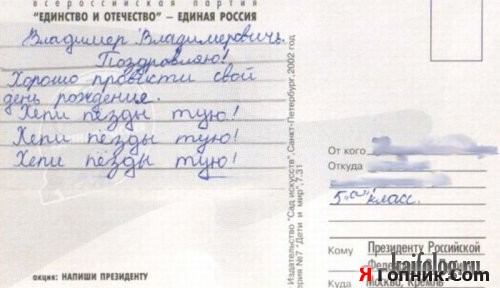 всероссийская партия
"ЕДИНСТВО И ОТЕЧЕСТВО" – ЕДИНАЯ РОССИЯ
Владимер Владимеровичь
Поздровляю!
Хорошо провисти свой
день рождение.
Хепи пёзды тую!
Хепи пёзды тую!
Хепи пёзды тую!
акция: НАПИШИ ПРЕЗИДЕНТУ
Издательство "Сад искусств", Санкт-Петербург, 2002 год
серия №7 "Дети и мир", 7.31
От кого
Откуда
5 "а" класс.
Кому Президенту Российской
Куда Москва, Кремль
kaifolog.ru
ЯГопник.Com